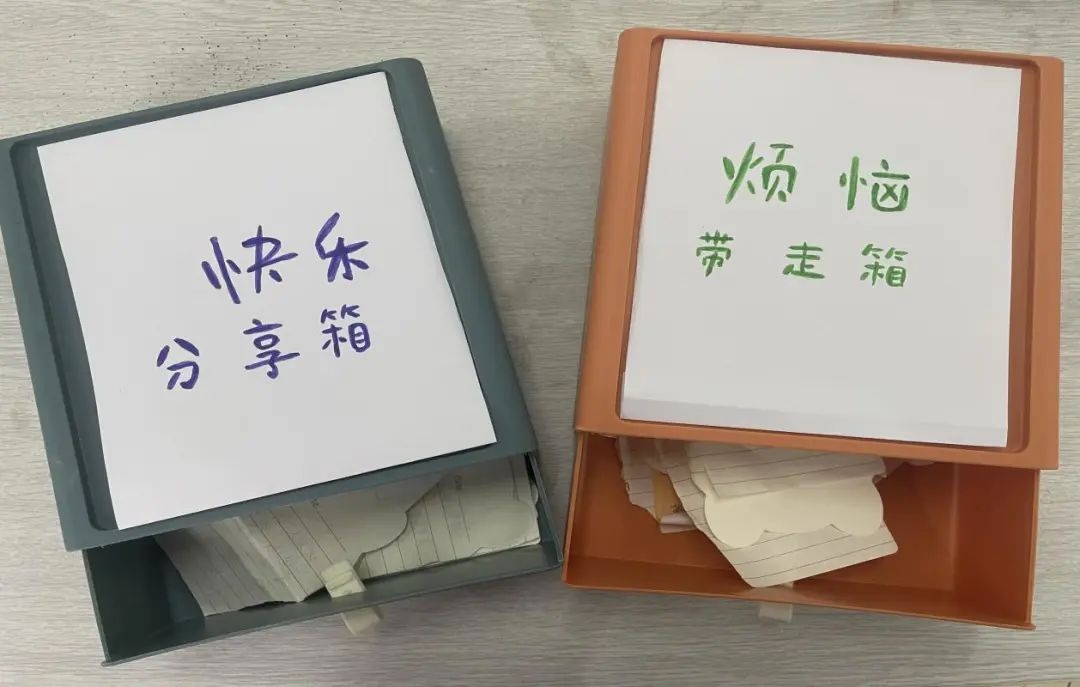 快乐
分享箱
烦恼
带走箱